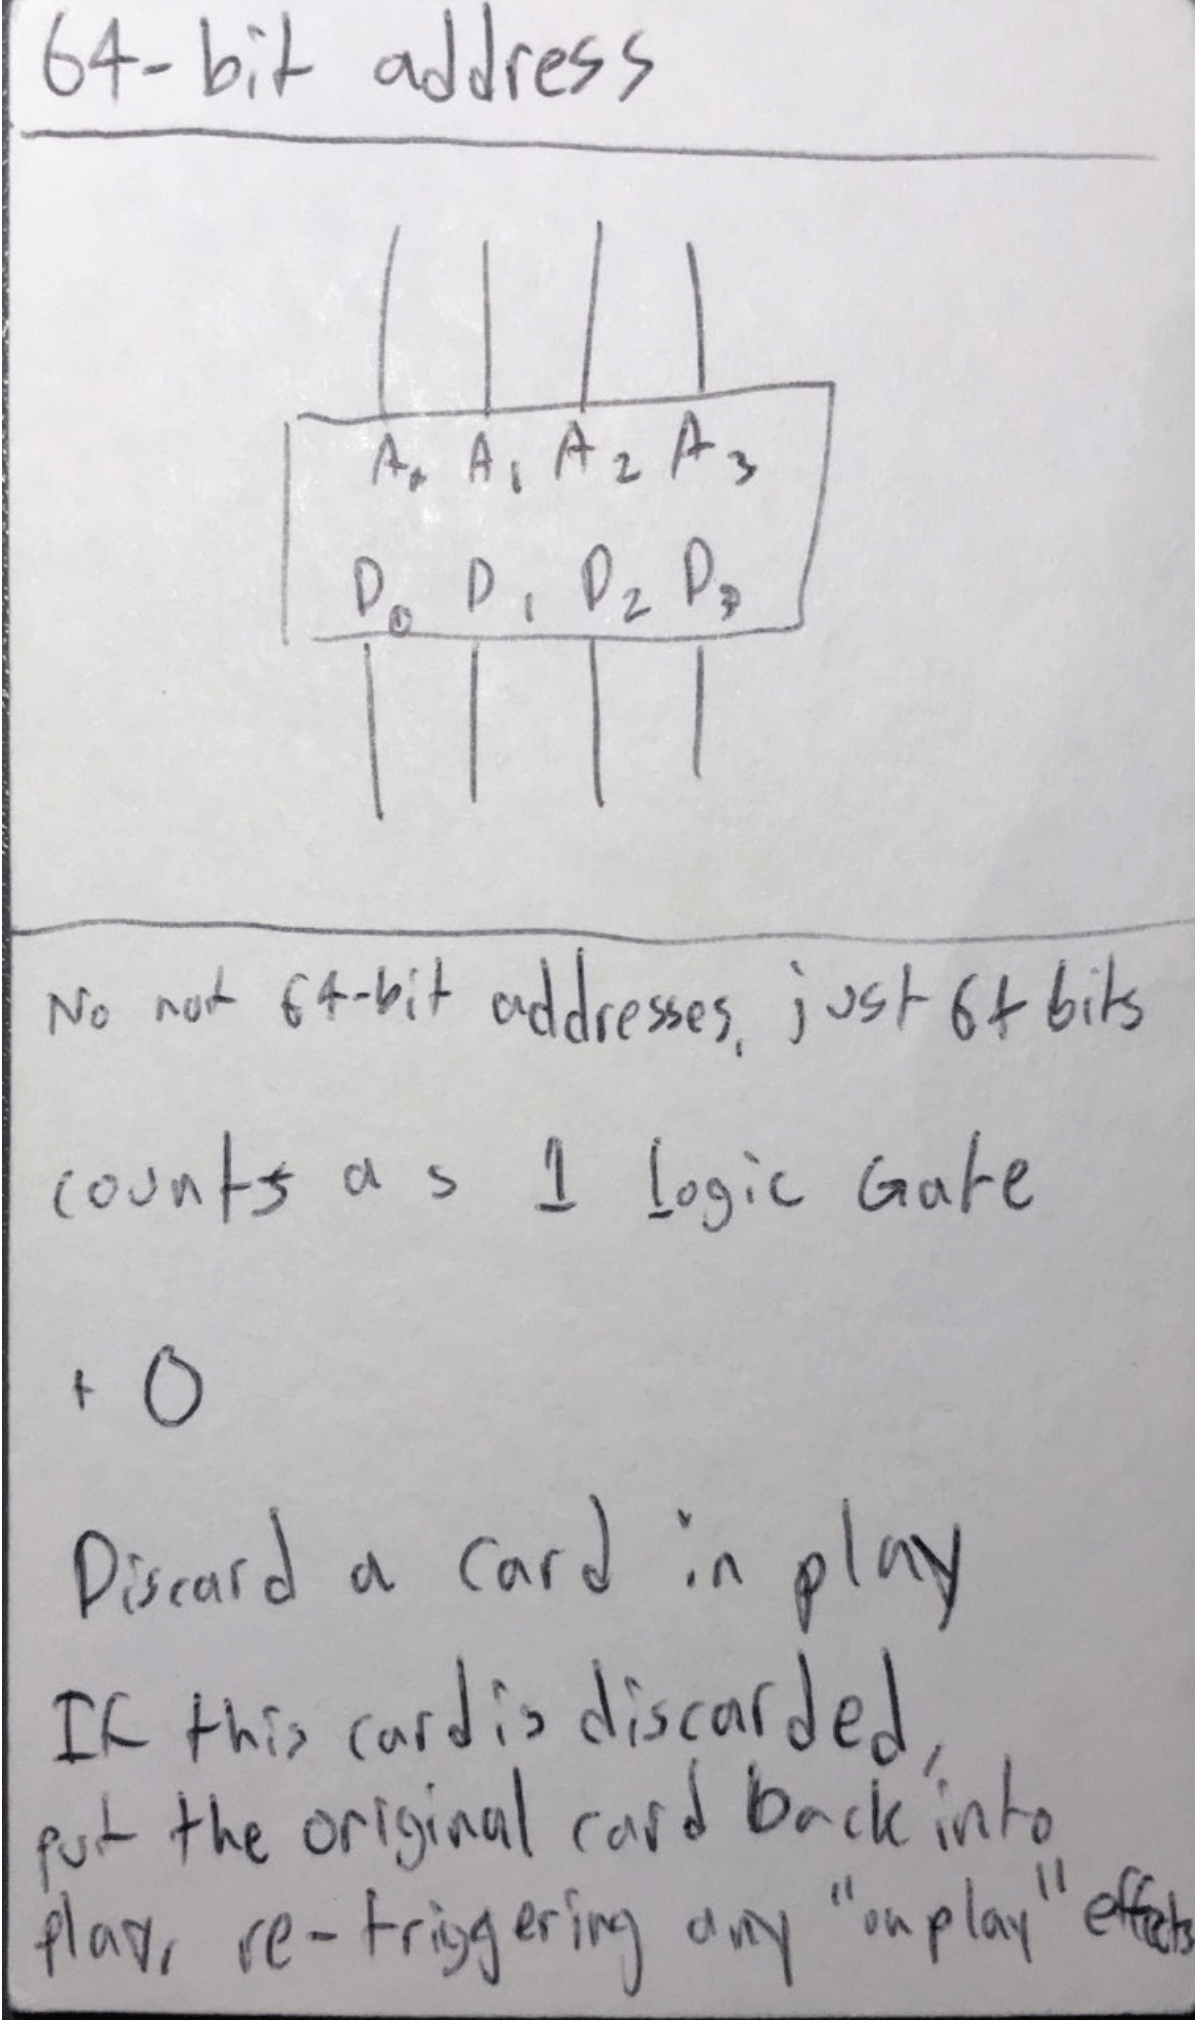 64-bit address
A0 A1 A2 A3
D0 D1 D2 D3
No not 64-bit addresses, just 64 bits
counts as 1 Logic Gate
+0
Discard a card in play
If this card is discarded,
put the original card back into
play, re-triggering any "on play" effects